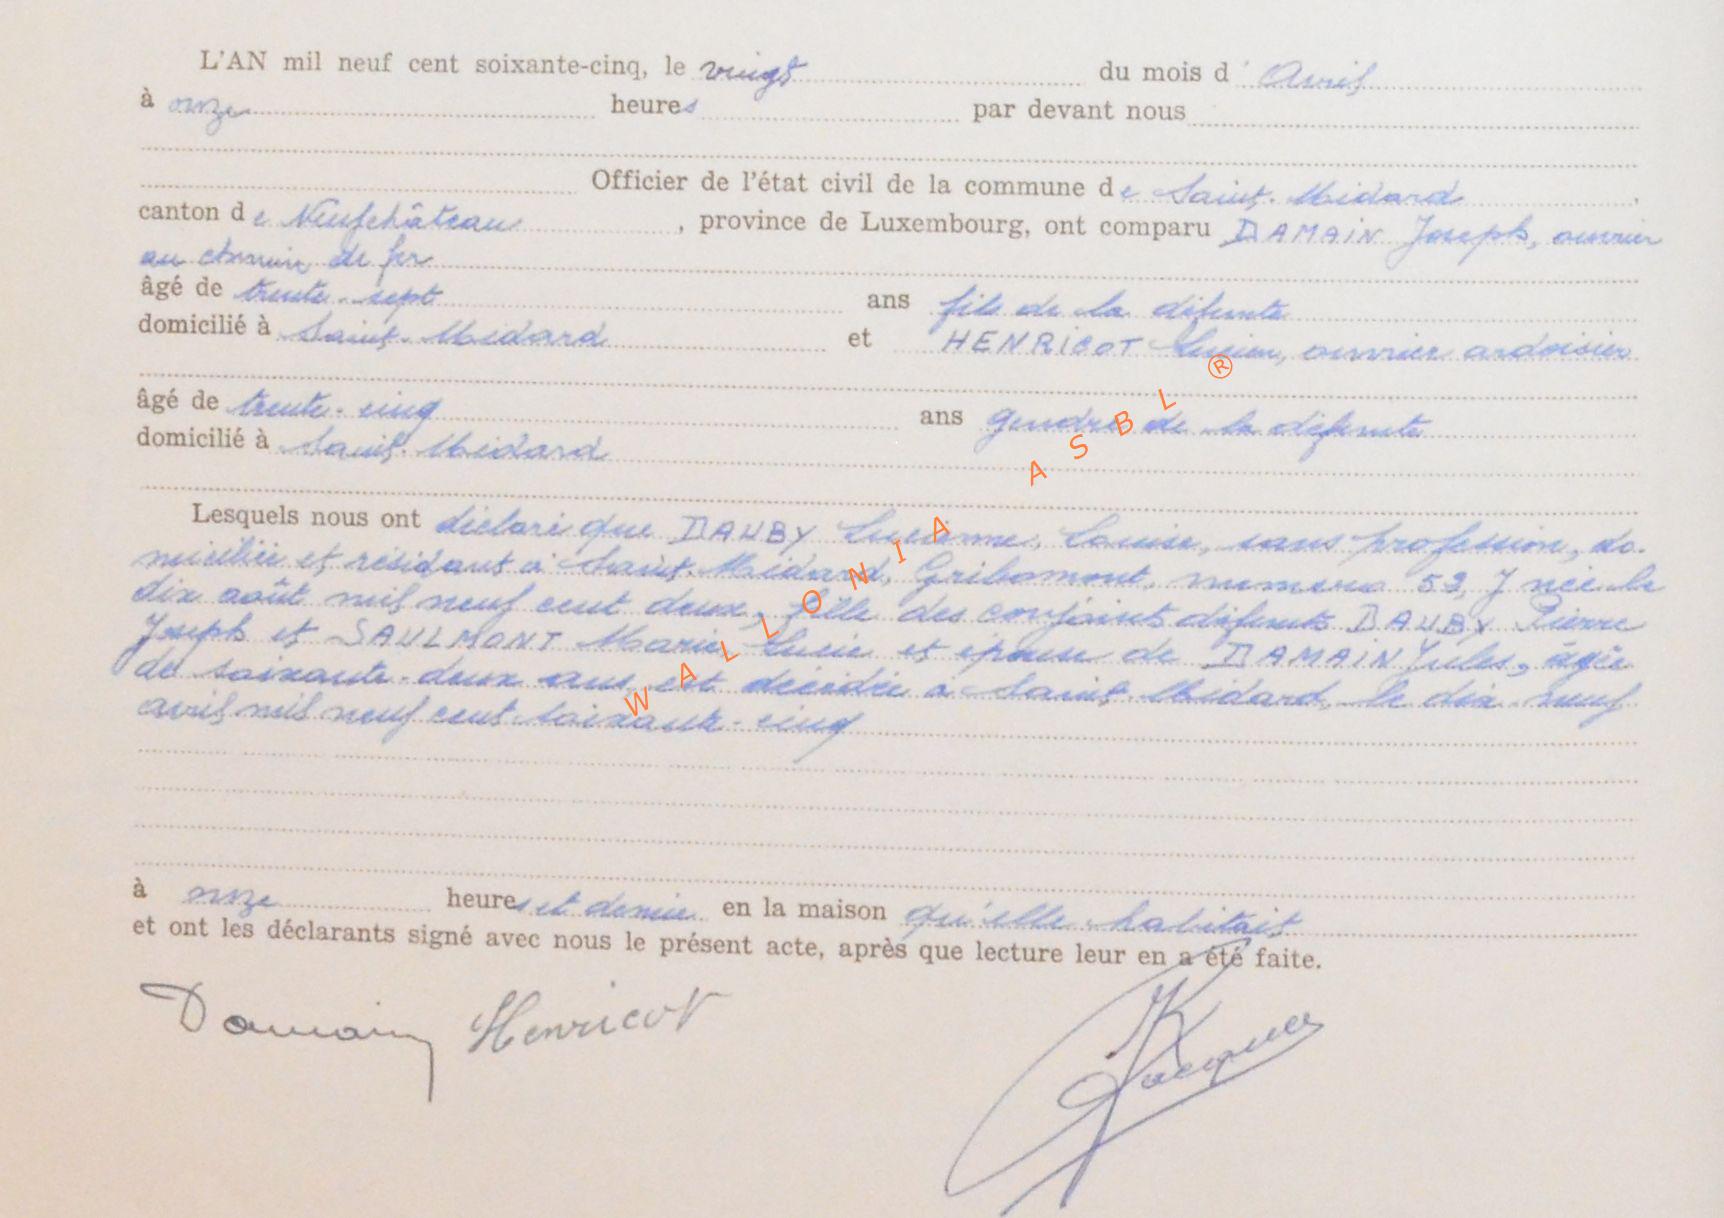 L'AN mil neuf cent soixante-cinq, le vingt du mois d' Avril
à onze heures par devant nous
Officier de l'état civil de la commune de Saint-Médard,
canton de Neufchâteau, province de Luxembourg, ont comparu DAMAIN Joseph, ouvrier
au chemin de fer
âgé de trente-sept ans fils de la défunte
domicilié à Saint-Médard et HENRICOT Lucien, ouvrier ardoisier
âgé de trente-cinq ans gendre de la défunte
domicilié à Saint-Médard
Lesquels nous ont déclaré que DAUBY Lucienne, Louise, sans profession, do-
miciliée et résidant à Saint-Médard, Gribomont, numéro 52, y née le
dix août mil neuf cent deux, fille des conjoints défunts DAUBY Pierre
Joseph et SAULMONT Marie, Lucie et épouse de DAMAIN Jules, âgée
de soixante-deux ans, est décédée à Saint-Médard, le dix-neuf
avril mil neuf cent soixante-cinq
à onze heures et demie en la maison qu'elle habitait
et ont les déclarants signé avec nous le présent acte, après que lecture leur en a été faite.
Damain Henricot Jacques
WALLONIA ASBL ®